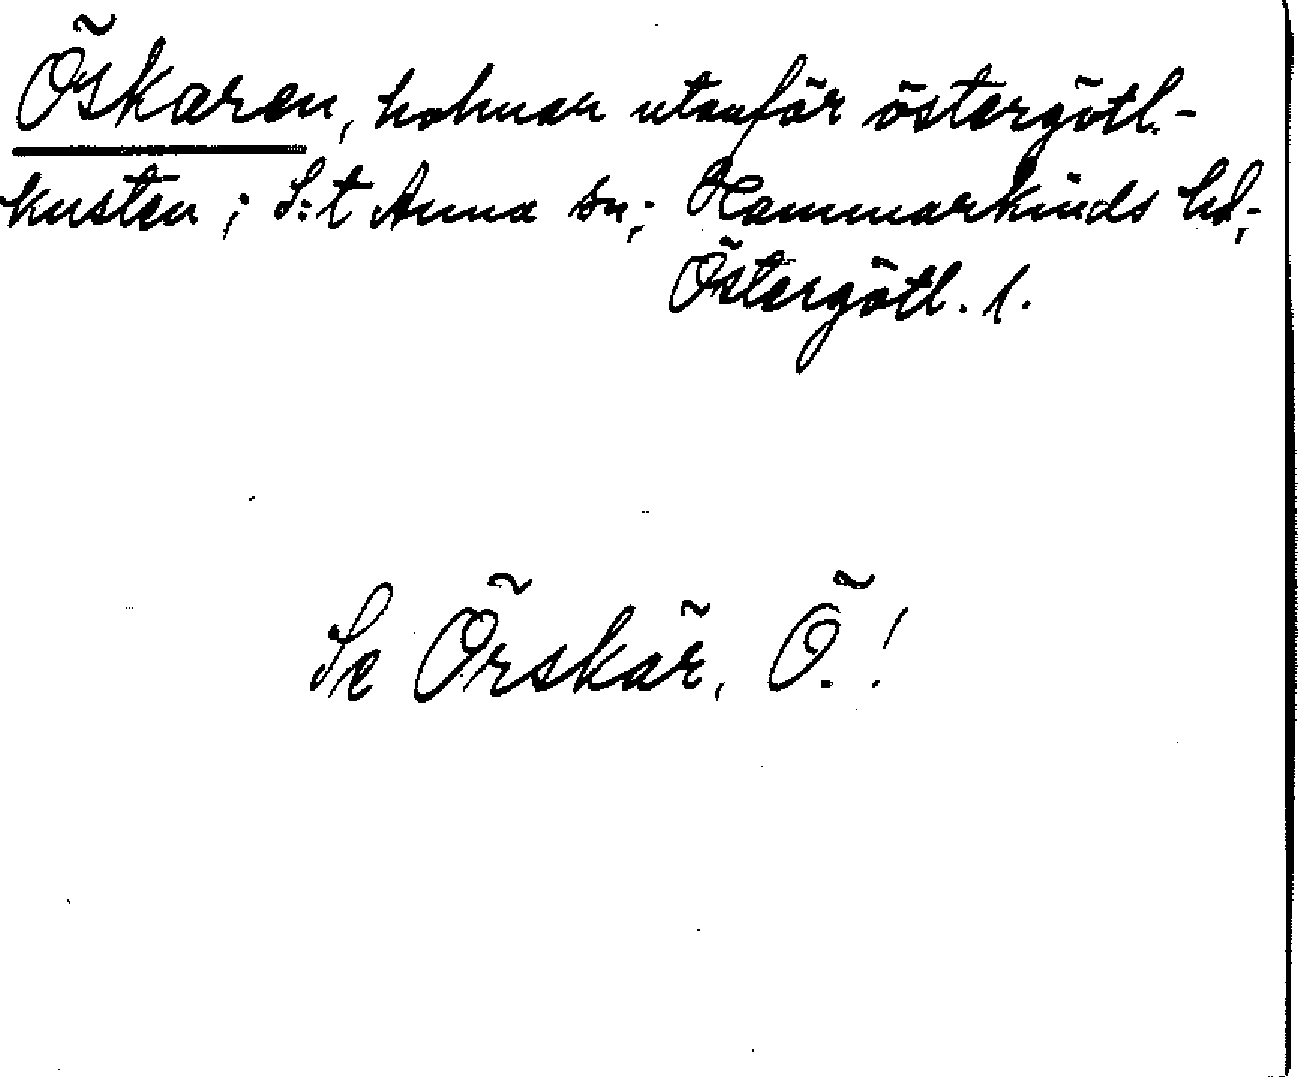 Öskaren, holmar utanför östergötl.-
kusten; S:t Anna sn; Hammarkinds hd;
Östergötl. l.
Se Örskär, Ö.!